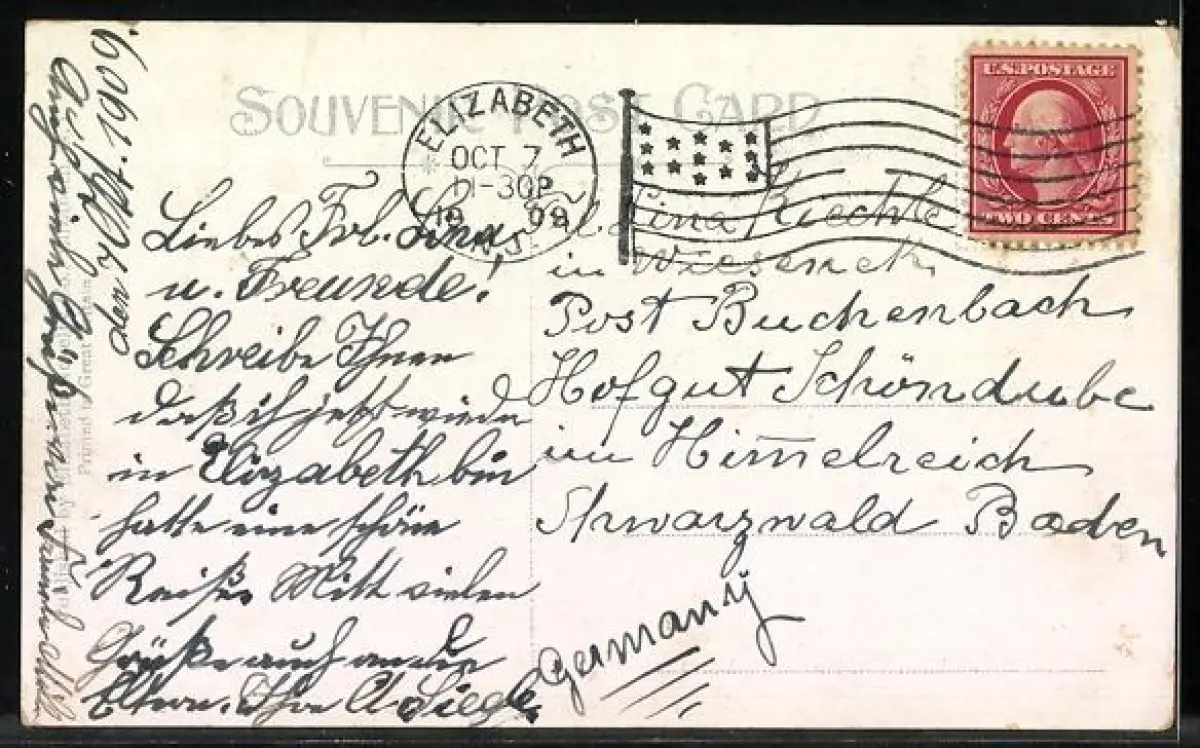 SOUVENIR POST CARD
ELIZABETH
OCT 7
11-30P
1909
N.J.
U.S. POSTAGE
TWO CENTS
den 7 Okt. 1909.
Liebes Frl. Lina
u. Freunde!
Schreibe Ihnen
daß ich jetzt wieder
in Elizabeth bin
hatte eine schöne
Reiße Mitt vielen
Grüße auch an die
Eltern. Ihre A Siegel
Lina Riechle
in Wieseneck
Post Buchenbach
Hofgut Schöndube
im Himelreich
Schwarzwald Baden
Germany
Printed in Great Britain